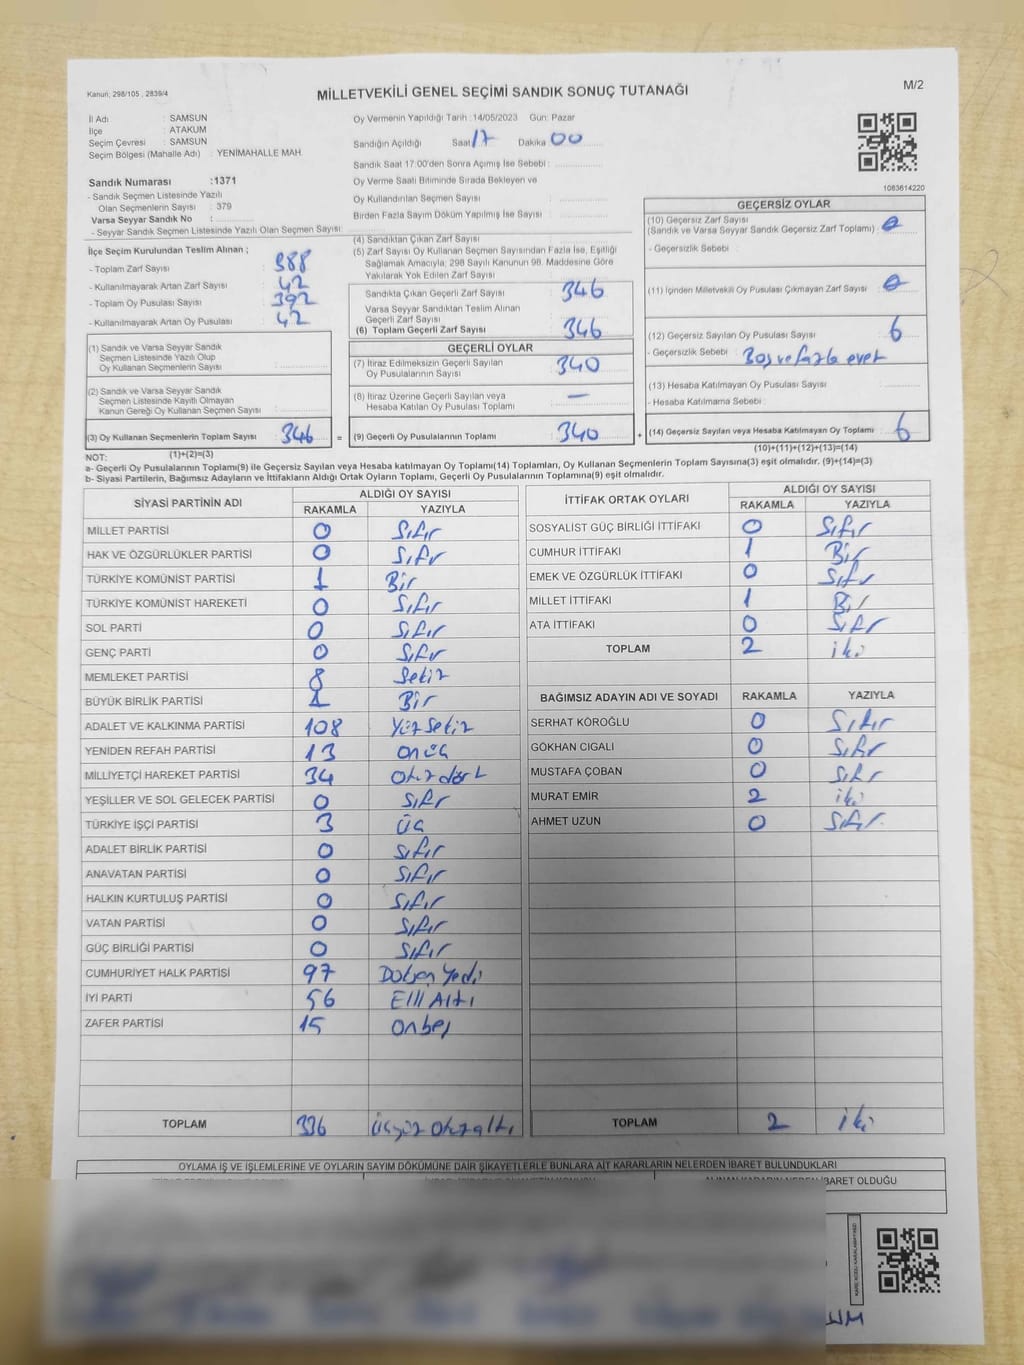 Kanun; 298/105 , 2839/4
MİLLETVEKİLİ GENEL SEÇİMİ SANDIK SONUÇ TUTANAĞI
M/2
İl Adı : SAMSUN
İlçe : ATAKUM
Seçim Çevresi : SAMSUN
Seçim Bölgesi (Mahalle Adı) : YENİMAHALLE MAH.
Oy Vermenin Yapıldığı Tarih :14/05/2023 Gün: Pazar
Sandığın Açıldığı Saat 17 Dakika 00
Sandık Saat 17:00'den Sonra Açımış İse Sebebi :
Oy Verme Saati Bitiminde Sırada Bekleyen ve
Oy Kullandırılan Seçmen Sayısı :
Birden Fazla Sayım Döküm Yapılmış İse Sayısı :
1083614220
Sandık Numarası :1371
- Sandık Seçmen Listesinde Yazılı
Olan Seçmenlerin Sayısı : 379
Varsa Seyyar Sandık No :
- Seyyar Sandık Seçmen Listesinde Yazılı Olan Seçmen Sayısı :
İlçe Seçim Kurulundan Teslim Alınan ;
- Toplam Zarf Sayısı : 388
- Kullanılmayarak Artan Zarf Sayısı : 42
- Toplam Oy Pusulası Sayısı : 392
- Kullanılmayarak Artan Oy Pusulası : 42
(1) Sandık ve Varsa Seyyar Sandık
Seçmen Listesinde Yazılı Olup
Oy Kullanan Seçmenlerin Sayısı :
(2) Sandık ve Varsa Seyyar Sandık
Seçmen Listesinde Kayıtlı Olmayan
Kanun Gereği Oy Kullanan Seçmen Sayısı :
(3) Oy Kullanan Seçmenlerin Toplam Sayısı : 346 =
(1)+(2)=(3)
(4) Sandıktan Çıkan Zarf Sayısı :
(5) Zarf Sayısı Oy Kullanan Seçmen Sayısından Fazla İse, Eşitliği
Sağlamak Amacıyla; 298 Sayılı Kanunun 98. Maddesine Göre
Yakılarak Yok Edilen Zarf Sayısı :
Sandıkta Çıkan Geçerli Zarf Sayısı : 346
Varsa Seyyar Sandıktan Teslim Alınan
Geçerli Zarf Sayısı :
(6) Toplam Geçerli Zarf Sayısı : 346
GEÇERLİ OYLAR
(7) İtiraz Edilmeksizin Geçerli Sayılan
Oy Pusulalarının Sayısı : 340
(8) İtiraz Üzerine Geçerli Sayılan veya
Hesaba Katılan Oy Pusulası Toplamı : —
(9) Geçerli Oy Pusulalarının Toplamı : 340 +
GEÇERSİZ OYLAR
(10) Geçersiz Zarf Sayısı
(Sandık ve Varsa Seyyar Sandık Geçersiz Zarf Toplamı) : 0
- Geçersizlik Sebebi :
(11) İçinden Milletvekili Oy Pusulası Çıkmayan Zarf Sayısı : 0
(12) Geçersiz Sayılan Oy Pusulası Sayısı : 6
- Geçersizlik Sebebi : Boş ve fazla evet
(13) Hesaba Katılmayan Oy Pusulası Sayısı :
- Hesaba Katılmama Sebebi :
(14) Geçersiz Sayılan veya Hesaba Katılmayan Oy Toplamı : 6
(10)+(11)+(12)+(13)=(14)
NOT:
a- Geçerli Oy Pusulalarının Toplamı(9) ile Geçersiz Sayılan veya Hesaba katılmayan Oy Toplamı(14) Toplamları, Oy Kullanan Seçmenlerin Toplam Sayısına(3) eşit olmalıdır. (9)+(14)=(3)
b- Siyasi Partilerin, Bağımsız Adayların ve İttifakların Aldığı Ortak Oyların Toplamı, Geçerli Oy Pusulalarının Toplamına(9) eşit olmalıdır.
SİYASİ PARTİNİN ADI ALDIĞI OY SAYISI
RAKAMLA YAZIYLA
MİLLET PARTİSİ 0 Sıfır
HAK VE ÖZGÜRLÜKLER PARTİSİ 0 Sıfır
TÜRKİYE KOMÜNİST PARTİSİ 1 Bir
TÜRKİYE KOMÜNİST HAREKETİ 0 Sıfır
SOL PARTİ 0 Sıfır
GENÇ PARTİ 0 Sıfır
MEMLEKET PARTİSİ 8 Sekiz
BÜYÜK BİRLİK PARTİSİ 1 Bir
ADALET VE KALKINMA PARTİSİ 108 Yüz Sekiz
YENİDEN REFAH PARTİSİ 13 onüç
MİLLİYETÇİ HAREKET PARTİSİ 34 Otuz dört
YEŞİLLER VE SOL GELECEK PARTİSİ 0 Sıfır
TÜRKİYE İŞÇİ PARTİSİ 3 Üç
ADALET BİRLİK PARTİSİ 0 Sıfır
ANAVATAN PARTİSİ 0 Sıfır
HALKIN KURTULUŞ PARTİSİ 0 Sıfır
VATAN PARTİSİ 0 Sıfır
GÜÇ BİRLİĞİ PARTİSİ 0 Sıfır
CUMHURİYET HALK PARTİSİ 97 Doksan Yedi
İYİ PARTİ 56 Elli Altı
ZAFER PARTİSİ 15 Onbeş
TOPLAM 336 Üçyüz Otuzaltı
İTTİFAK ORTAK OYLARI ALDIĞI OY SAYISI
RAKAMLA YAZIYLA
SOSYALİST GÜÇ BİRLİĞİ İTTİFAKI 0 Sıfır
CUMHUR İTTİFAKI 1 Bir
EMEK VE ÖZGÜRLÜK İTTİFAKI 0 Sıfır
MİLLET İTTİFAKI 1 Bir
ATA İTTİFAKI 0 Sıfır
TOPLAM 2 iki
BAĞIMSIZ ADAYIN ADI VE SOYADI RAKAMLA YAZIYLA
SERHAT KÖROĞLU 0 Sıfır
GÖKHAN CIGALI 0 Sıfır
MUSTAFA ÇOBAN 0 Sıfır
MURAT EMİR 2 iki
AHMET UZUN 0 Sıfır
TOPLAM 2 iki
OYLAMA İŞ VE İŞLEMLERİNE VE OYLARIN SAYIM DÖKÜMÜNE DAİR ŞİKAYETLERLE BUNLARA AİT KARARLARIN NELERDEN İBARET BULUNDUKLARI
İBARET OLDUĞU